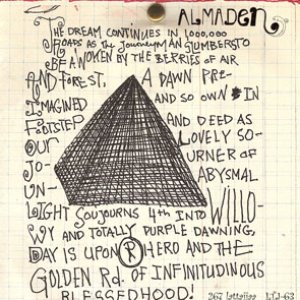 ALMADEN
THE DREAM CONTINUES IN 1,000,000
ROADS AS THE JOURNEYMAN SLUMBERS TO
BE AWOKEN BY THE BERRIES OF AIR
AND FOREST, A DAWN PRE-
IMAGINED AND SO OWN IN
FOOTSTEP AND DEED AS
OUR LOVELY SO-
JO- URNER OF
UN- ABYSMAL
LIGHT SOUJOURNS 4th INTO WILLO-
WY AND TOTALLY PURPLE DAWNING,
DAY IS UPON R HERO AND THE
GOLDEN Rd. OF INFINITUDINOUS
BLESSEDHOOD!
267